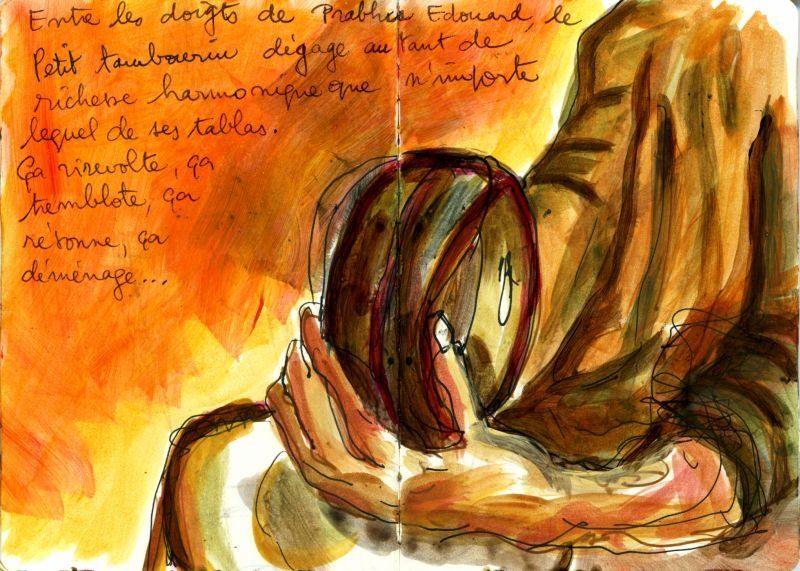 Entre les doigts de Prabhu Edouard, le
Petit tambourin dégage autant de
richesse harmonique que n'importe
lequel de ses tablas.
ça virevolte, ça
tremblote, ça
résonne, ça
déménage...